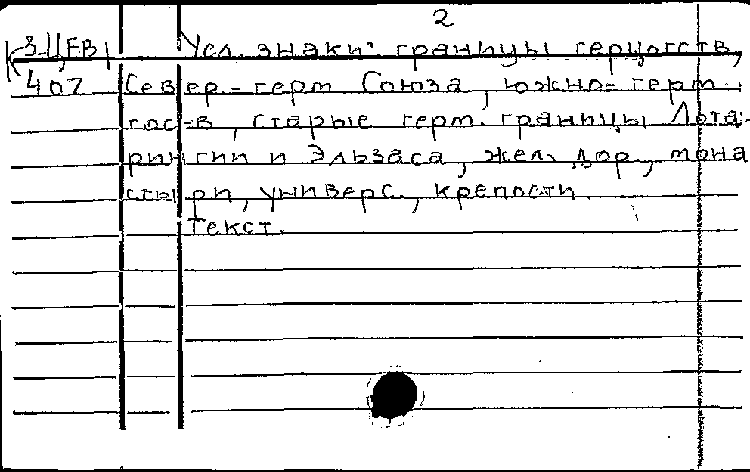 2
К 3-ЦЕВ/ Усл. знаки: границы герцогств,
407 Север.-герм. Союза, южно-герм.
гос-в, старые герм. границы Лота-
рингии и Эльзаса, жел. дор., мона
стыри, универс., крепости.
Текст.